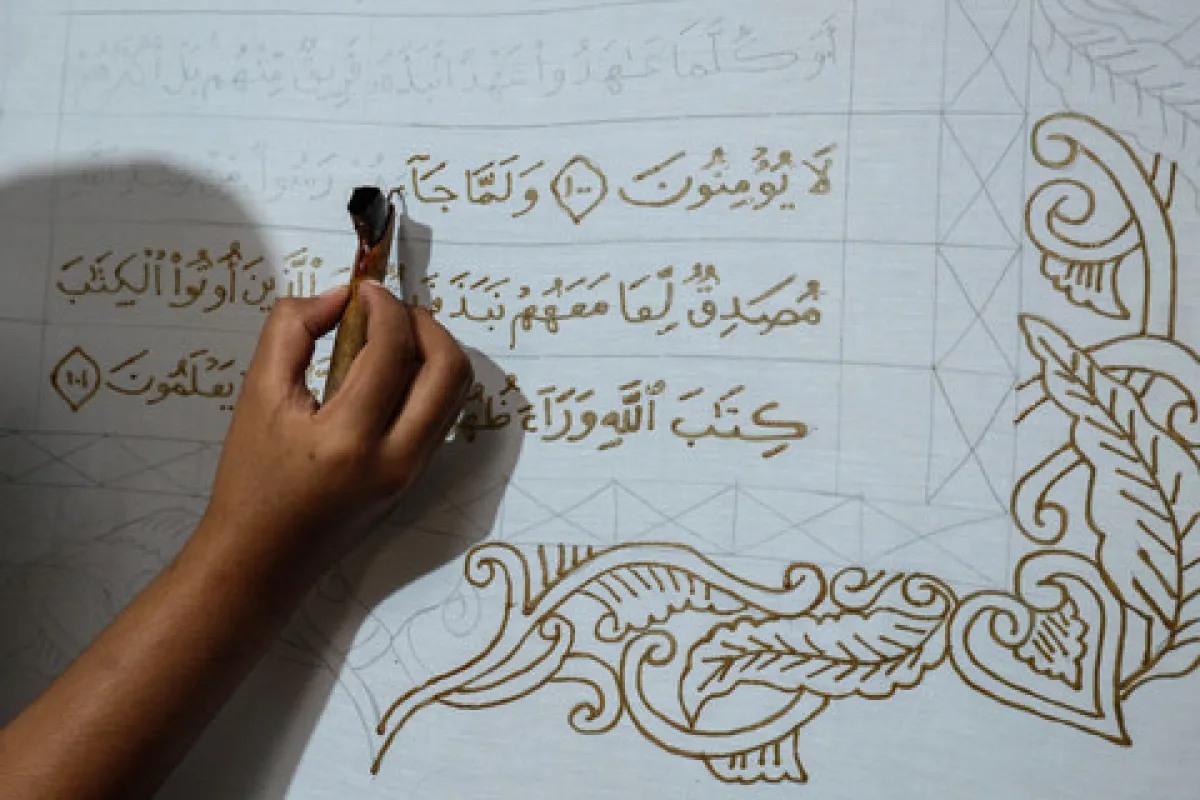 أَوَكُلَّمَا عَٰهَدُوا۟ عَهْدًا نَّبَذَهُۥ فَرِيقٌ مِّنْهُم بَلْ أَكْثَرُهُمْ
لَا يُؤْمِنُونَ ١٠٠ وَلَمَّا جَآ
مُصَدِّقٌ لِّمَا مَعَهُمْ نَبَذَ ٱلَّذِينَ أُوتُوا۟ ٱلْكِتَٰبَ
كِتَٰبَ ٱللَّهِ وَرَآءَ يَعْلَمُونَ ١٠١